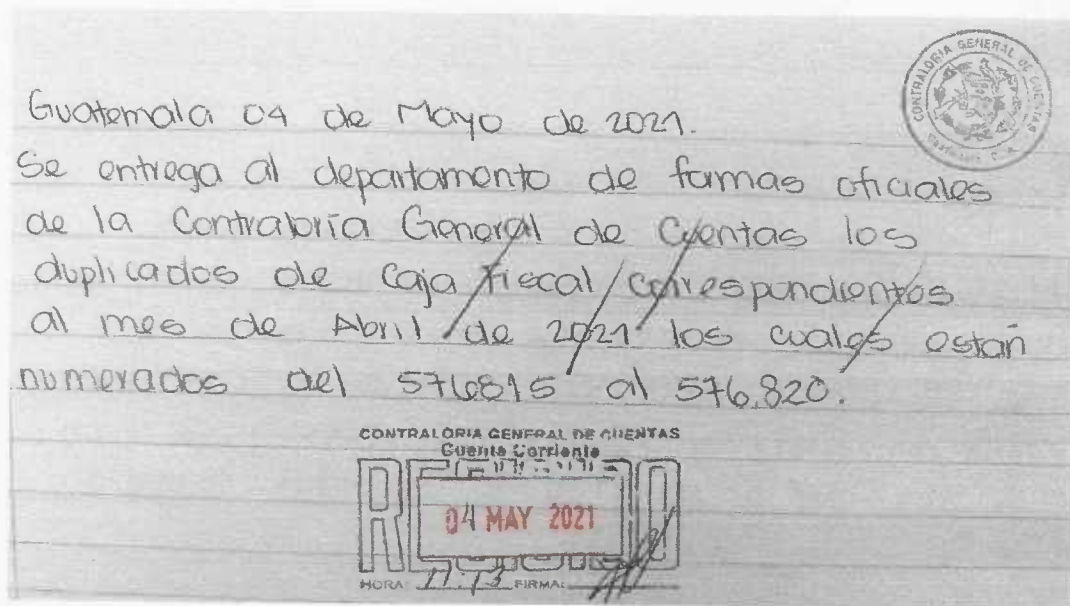 CONTRALORIA GENERAL DE CUENTAS
Guatemala 04 de Mayo de 2021.
Se entrega al departamento de formas oficiales
de la Contraloría General de Cuentas los
duplicados de Caja Fiscal correspondientes
al mes de Abril de 2021 los cuales están
numerados del 576815 al 576,820.
CONTRALORIA GENERAL DE CUENTAS
Cuenta Corriente
04 MAY 2021
HORA: 11:13 FIRMA: